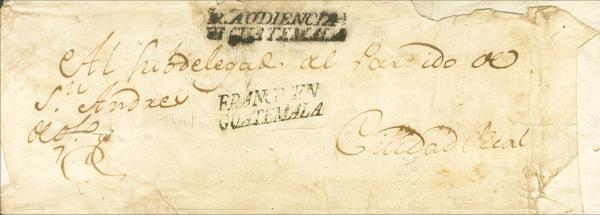 R. AUDIENCIA
GUATEMALA
Al subdelegado. al Partido de
Sn. Andres
FRANCO EN
GUATEMALA
Ciudad Real